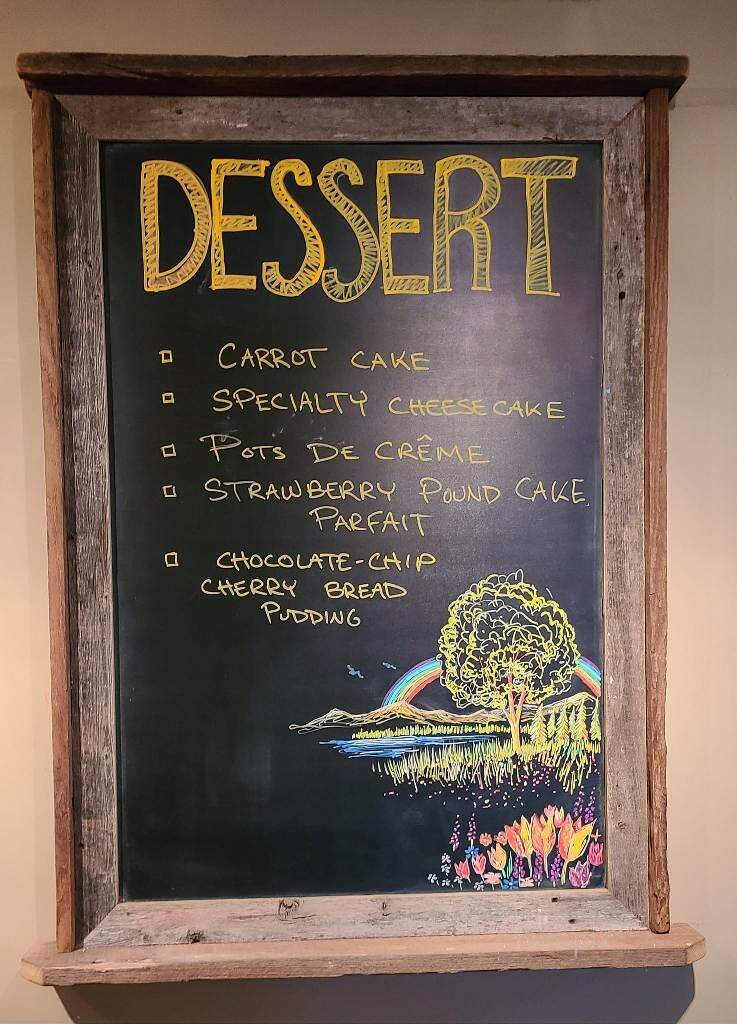 DESSERT
CARROT CAKE
SPECIALTY CHEESE CAKE
POTS DE CRÊME
STRAWBERRY POUND CAKE
PARFAIT
CHOCOLATE-CHIP
CHERRY BREAD
PUDDING